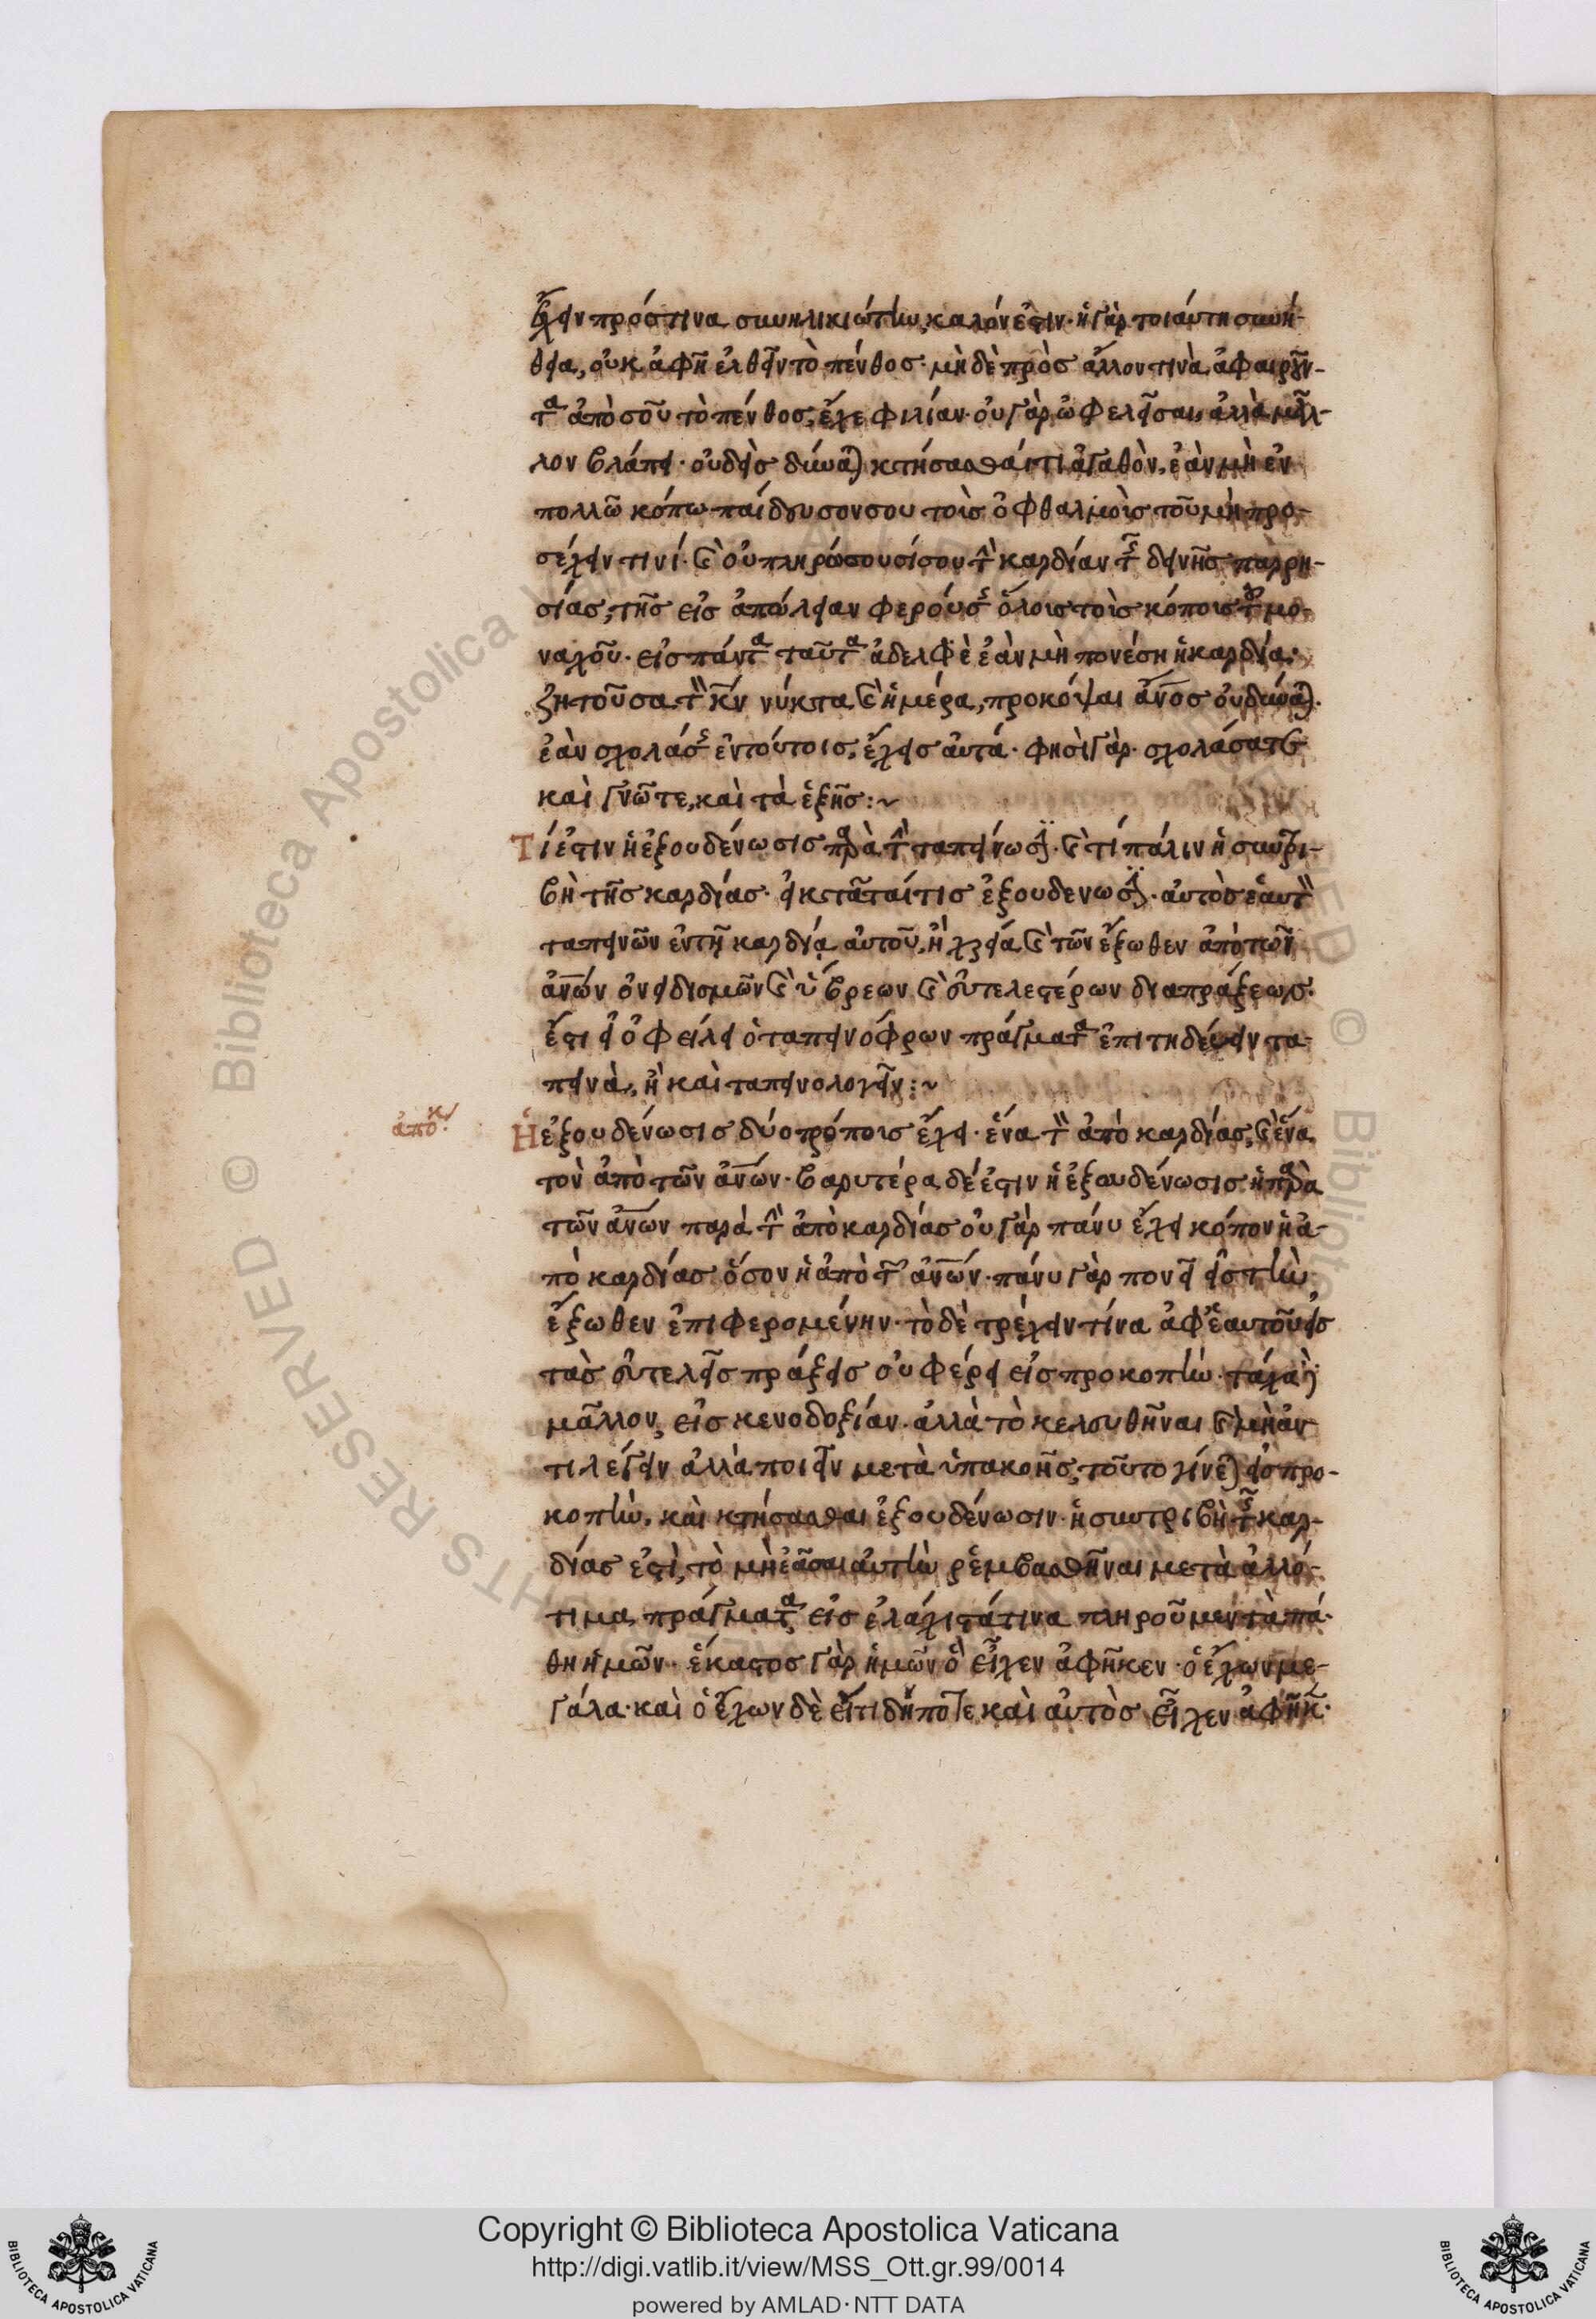 ἔχειν πρός τινα συνηλικιώτην, καλόν ἐστιν· ἡ γὰρ τοιαύτη συνή-
θεια, οὐκ ἀφῆ ἐλθεῖν τὸ πένθος· μὴ δὲ πρὸς ἄλλον τινὰ ἀφαιροῦν-
τα ἀπὸ σοῦ τὸ πένθος, ἔχε φιλίαν· οὐ γὰρ ὠφελεῖσαι, ἀλλὰ μᾶλ-
λον βλάπτει· οὐδεὶς δύναται κτήσασθαί τι ἀγαθὸν, ἐὰν μὴ ἐν
πολλῶ κόπω· παίδευσον σου τοὺς ὀφθαλμοὺς τοῦ μὴ προ-
σέχειν τινί· καὶ οὐ πληρώσουσί σου τὴν καρδίαν τῆς δεινῆς παρρη-
σίας, τῆς εἰς ἀπώλειαν φερούσης ὅλους τοὺς κόπους τοῦ μο-
ναχοῦ· εἰς πάντα ταῦτα ἀδελφὲ ἐὰν μὴ πονέση ἡ καρδία·
ζητοῦσα τὸν κν νύκτα καὶ ἡμέρα, προκόψαι ἄνος οὐ δύναται·
ἐὰν σχολάσης ἐν τούτοις, ἔχεις αὐτά· φησὶ γάρ· σχολάσατε
καὶ γνῶτε, καὶ τὰ ἑξῆς :~
Τί ἐστιν ἡ ἐξουδένωσις παρὰ τὴν ταπείνωσιν· καὶ τί πάλιν ἡ συντρι-
βὴ τῆς καρδίας· εἰ κτᾶταί τις ἐξουδένωσιν· αὐτὸς ἑαυτὸν
ταπεινῶν ἐν τῆ καρδία αὐτοῦ, ἢ χρεία καὶ τῶν ἔξωθεν ἀπὸ τῶν
ἀνων ὀνειδισμῶν καὶ ὕβρεων καὶ εὐτελεστέρων διαπράξεως·
ἔτι εἰ ὀφείλει ὁ ταπεινόφρων πράγματα ἐπιτηδεύειν τα-
πεινὰ, ἢ καὶ ταπεινολογεῖν :~
ἀπόκ
Ἡ ἐξουδένωσις δύο τρόποις ἔχει· ἕνα τὸν ἀπὸ καρδίας, καὶ ἕνα
τὸν ἀπὸ τῶν ἀνων· βαρυτέρα δέ ἐστιν ἡ ἐξουδένωσις ἡ παρὰ
τῶν ἀνων παρὰ τὴν ἀπὸ καρδίας οὐ γὰρ πάνυ ἔχει κόπον ἡ ἀ-
πὸ καρδίας ὅσον ἡ ἀπὸ τῶν ἀνων· πάνυ γὰρ πονεῖ εἰς τὴν
ἔξωθεν ἐπιφερομένην· τὸ δὲ τρέχειν τίνα ἀφ' ἑαυτοῦ εἰς
τὰς εὐτελεῖς πράξεις οὐ φέρει εἰς προκοπὴν· τάχα δὲ
μᾶλλον, εἰς κενοδοξίαν· ἀλλὰ τὸ κελευθῆναι καὶ μὴ ἀν
τιλέγειν ἀλλὰ ποιεῖν μετὰ ὑπακοῆς, τοῦτο γίνεται εἰς προ-
κοπὴν, καὶ κτήσασθαι ἐξουδένωσιν· ἡ συντριβὴ τῆς καρ-
δίας ἐστὶ, τὸ μὴ ἐᾶσαι αὐτὴν ῥεμβασθῆναι μετὰ ἀλλό-
τιμα πράγματα εἰς ἐλάχιστά τινα πληροῦμεν τὰ πά-
θη ἡμῶν· ἕκαστος γὰρ ἡμῶν ὃ εἶχεν ἀφῆκεν· ὁ ἔχων με-
γάλα· καὶ ὁ ἔχων δὲ εἴτι δήποτε καὶ αὐτὸς εἶχεν ἀφῆκεν·
Copyright © Biblioteca Apostolica Vaticana
http://digi.vatlib.it/view/MSS_Ott.gr.99/0014
powered by AMLAD·NTT DATA
BIBLIOTECA APOSTOLICA VATICANA
BIBLIOTECA APOSTOLICA VATICANA